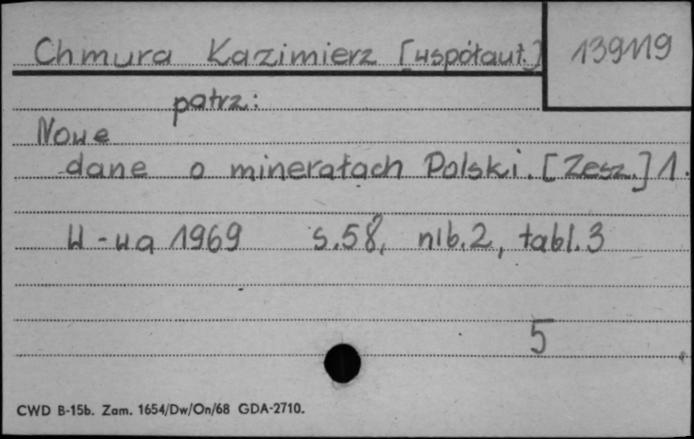 Chmura Kazimierz [współaut.] 139119
patrz:
Nowe
dane o minerałach Polski. [Zesz.] 1.
W-wa 1969 s. 58, nlb. 2, tabl. 3
5
CWD B-15b. Zam. 1654/Dw/On/68 GDA-2710.